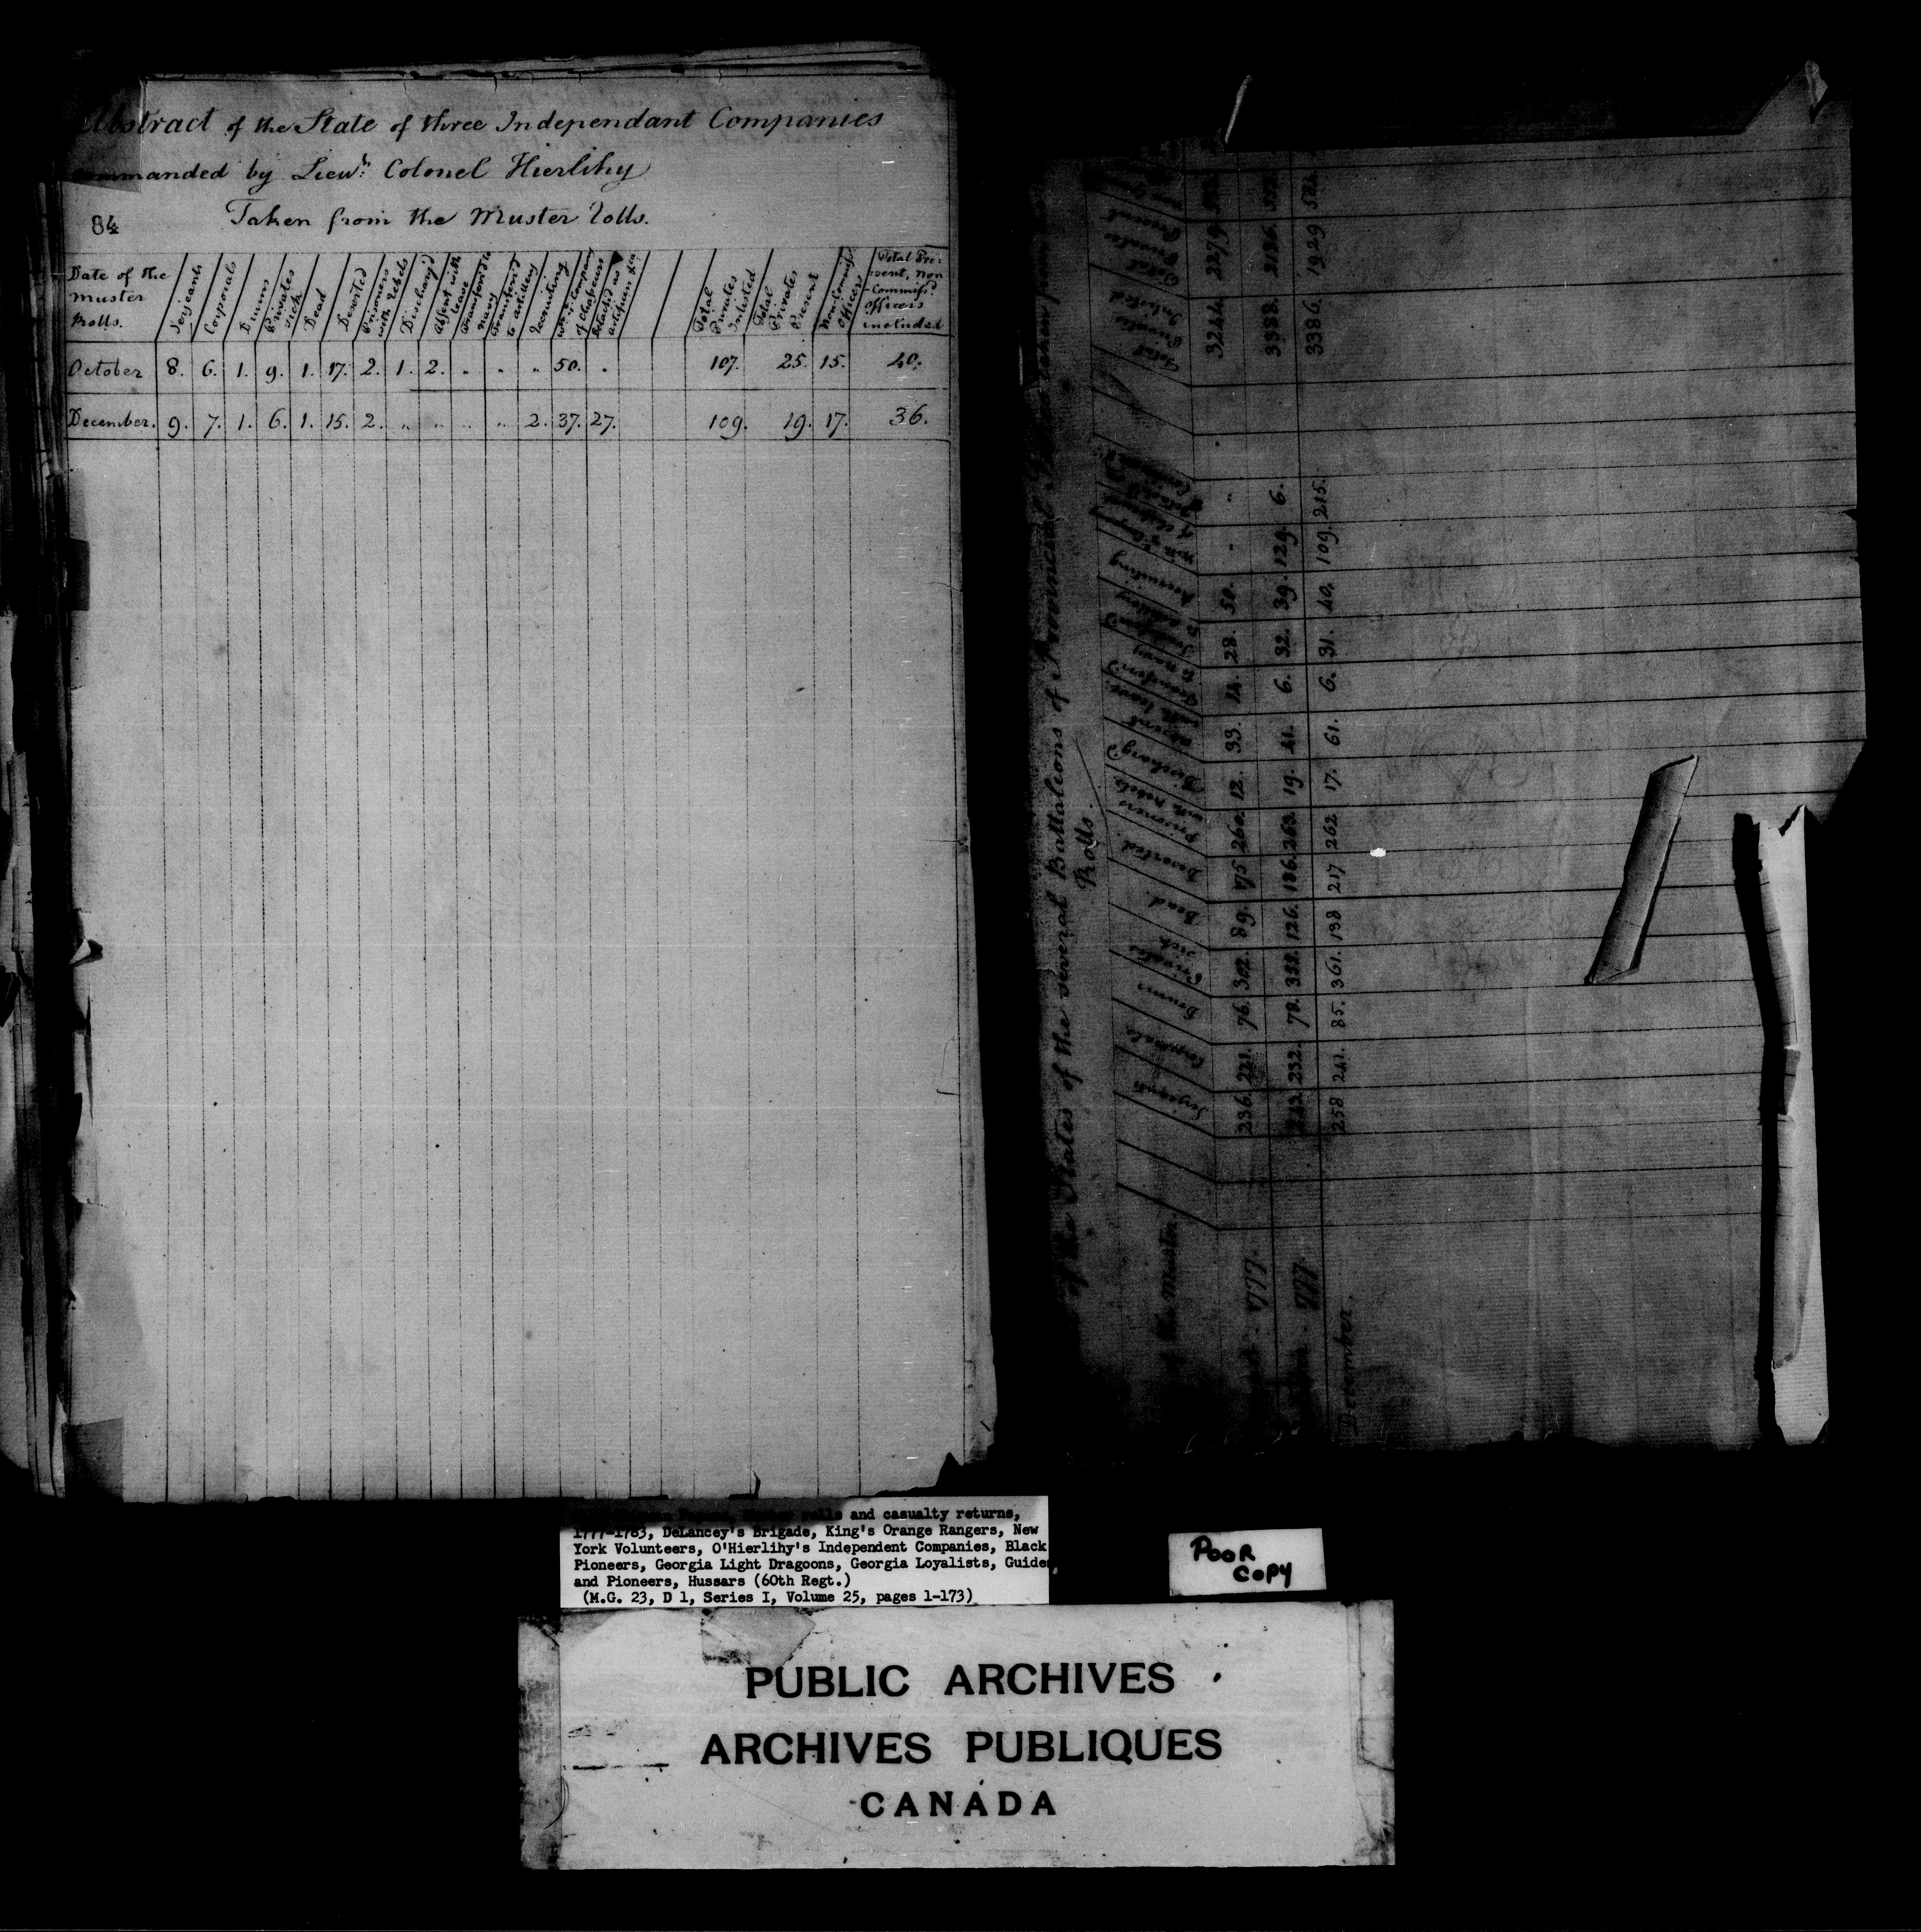 Abstract of the State of three Independant Companies
commanded by Lieu.t Colonel Hierlihy
84
Taken from the Muster Rolls.
Date of the Muster Rolls. Serjeants Corporals Drums Privates sick Dead Deserted Prisoners with Rebels Discharg'd Absent with leave Transferr'd to navy Transferr'd to artillery Recruiting Total Privates Inlisted Total Privates Present Non-Commiss'd Officers Total Present, Non Commiss'd Officers included
October 8. 6. 1. 9. 1. 17. 2. 1. 2. . " " 50. . 107. 25. 15. 40.
December. 9. 7. 1. 6. 1. 15. 2. " " " " 2. 37. 27. 109. 19. 17. 36.
of the States of the several Battalions of Provincial
Rolls.
of the Muster. Serjeants Corporals Drums Privates sick Dead. Deserted. Prisoners with Rebels Discharg'd Absent with leave. Transferr'd to navy Recruiting Total Privates Inlisted Total Privates Present
777. 236. 221. 76. 302. 89. 175 260. 12. 33. 14. 28. 50. " " 3244. 2279.
777. 232. 78. 126. 186. 263. 19. 41. 6. 32. 39. 129. 6. 2186.
December. 258 241. 85. 361. 138 217 262 17. 61. 6. 31. 40. 109. 215. 3386. 1929
rolls and casualty returns,
1777-1783, DeLancey's Brigade, King's Orange Rangers, New
York Volunteers, O'Hierlihy's Independent Companies, Black
Pioneers, Georgia Light Dragoons, Georgia Loyalists, Guides
and Pioneers, Hussars (60th Regt.)
(M.G. 23, D 1, Series I, Volume 25, pages 1-173)
POOR
COPY
PUBLIC ARCHIVES
ARCHIVES PUBLIQUES
CANADA